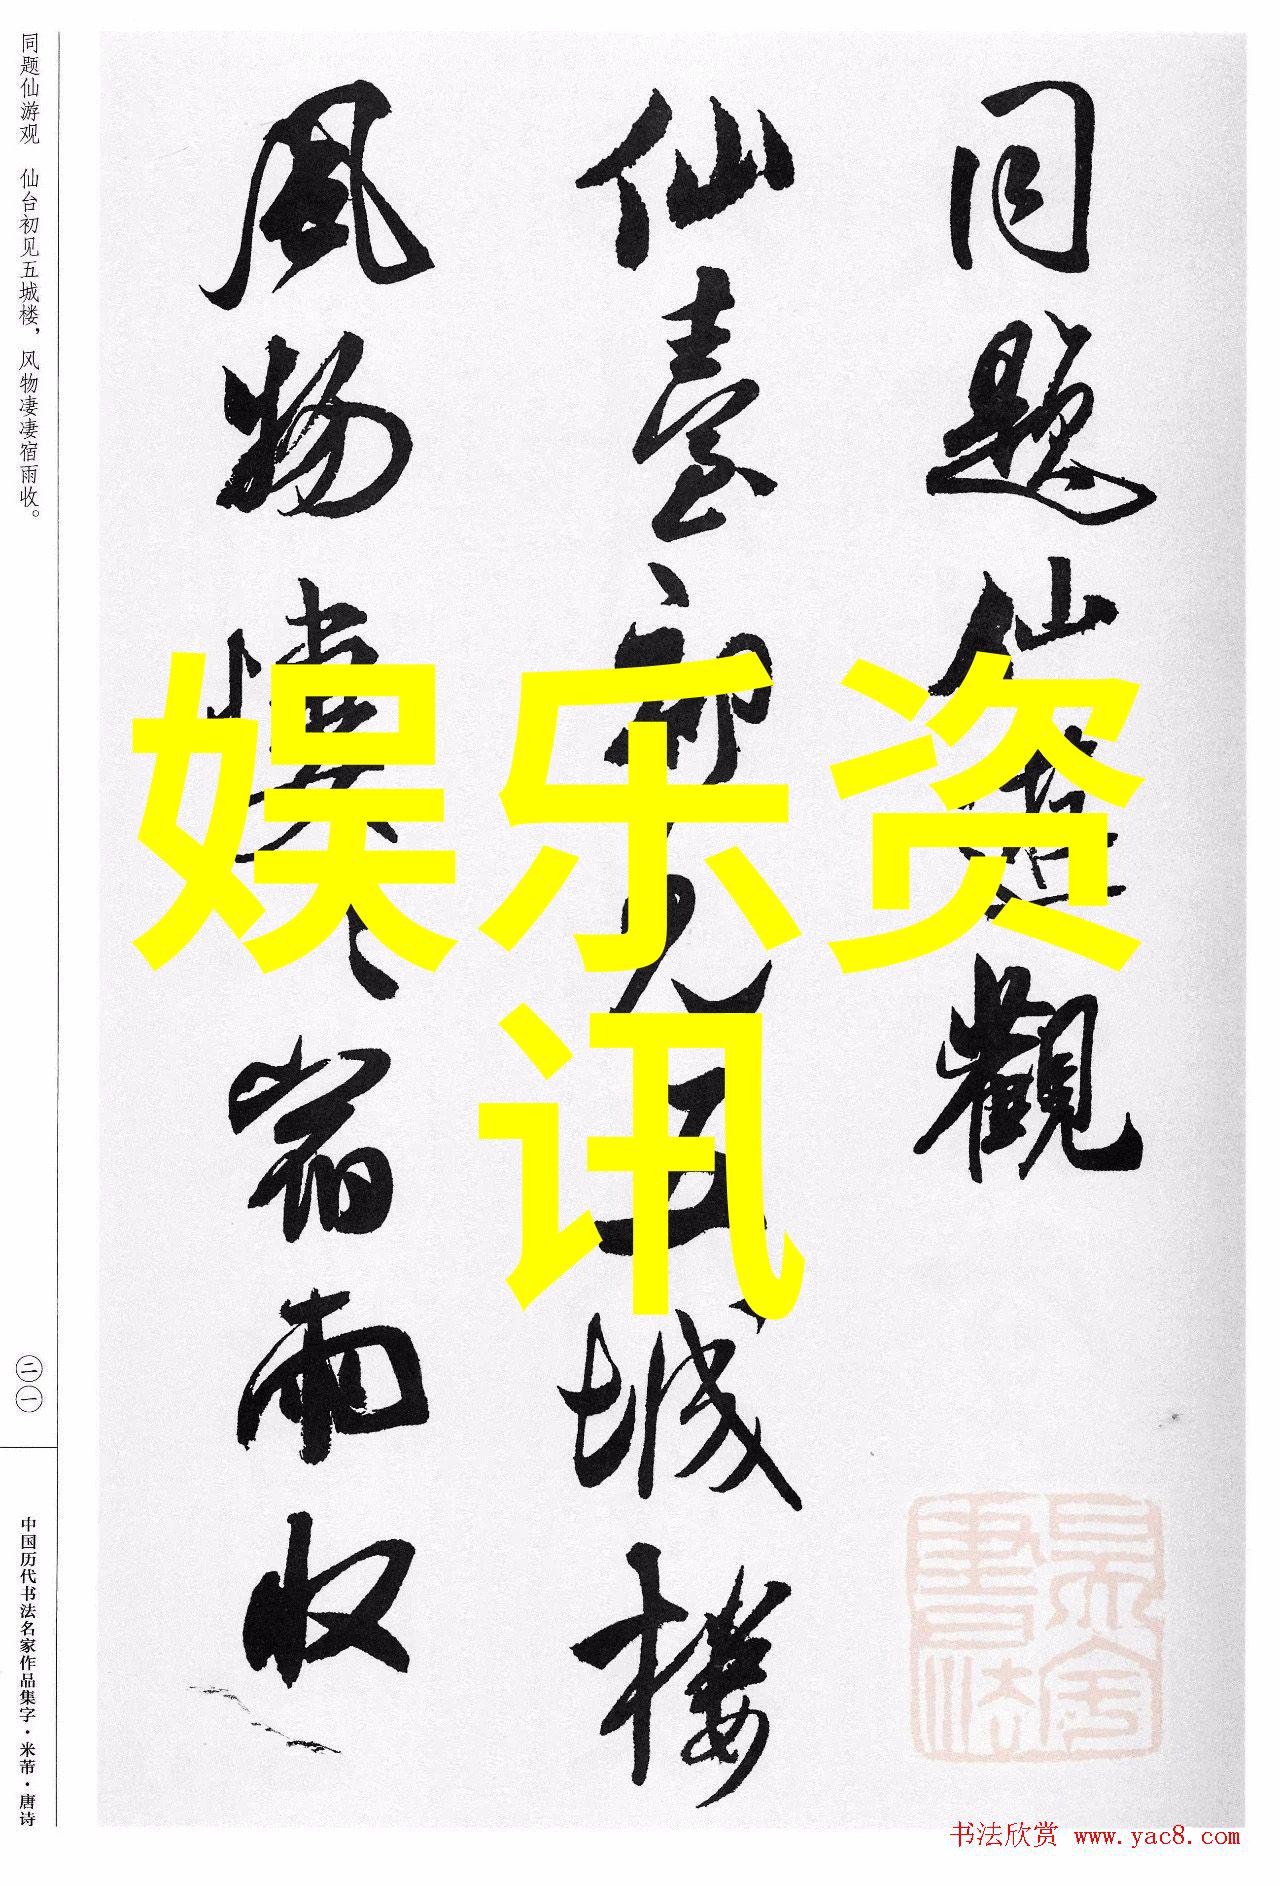 同题仙游观 仙台初见五城楼，风物凄凄宿雨收。
同题仙遊觀
仙臺初见五城楼
风物凄〻宿雨收
娱乐资
讯
二一
中国历代书法名家作品集字·米芾·唐诗
书法欣赏 www.yac8.com